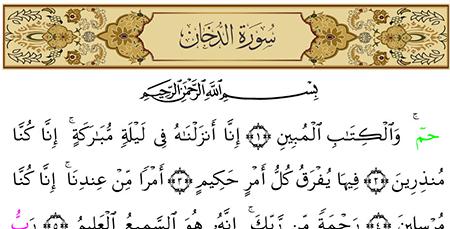 سُورَةُ الدُّخَانِ
بِسْمِ اللَّهِ الرَّحْمَٰنِ الرَّحِيمِ
حمٓ ۚ وَالْكِتَابِ الْمُبِينِ ﴿١﴾ إِنَّا أَنزَلْنَاهُ فِى لَيْلَةٍ مُّبَارَكَةٍ ۚ إِنَّا كُنَّا
مُنذِرِينَ ﴿٢﴾ فِيهَا يُفْرَقُ كُلُّ أَمْرٍ حَكِيمٍ ﴿٣﴾ أَمْرًا مِّنْ عِندِنَا ۚ إِنَّا كُنَّا
مُرْسِلِينَ ﴿٤﴾ رَحْمَةً مِّن رَّبِّكَ ۚ إِنَّهُ هُوَ السَّمِيعُ الْعَلِيمُ ﴿٥﴾ رَبُّ